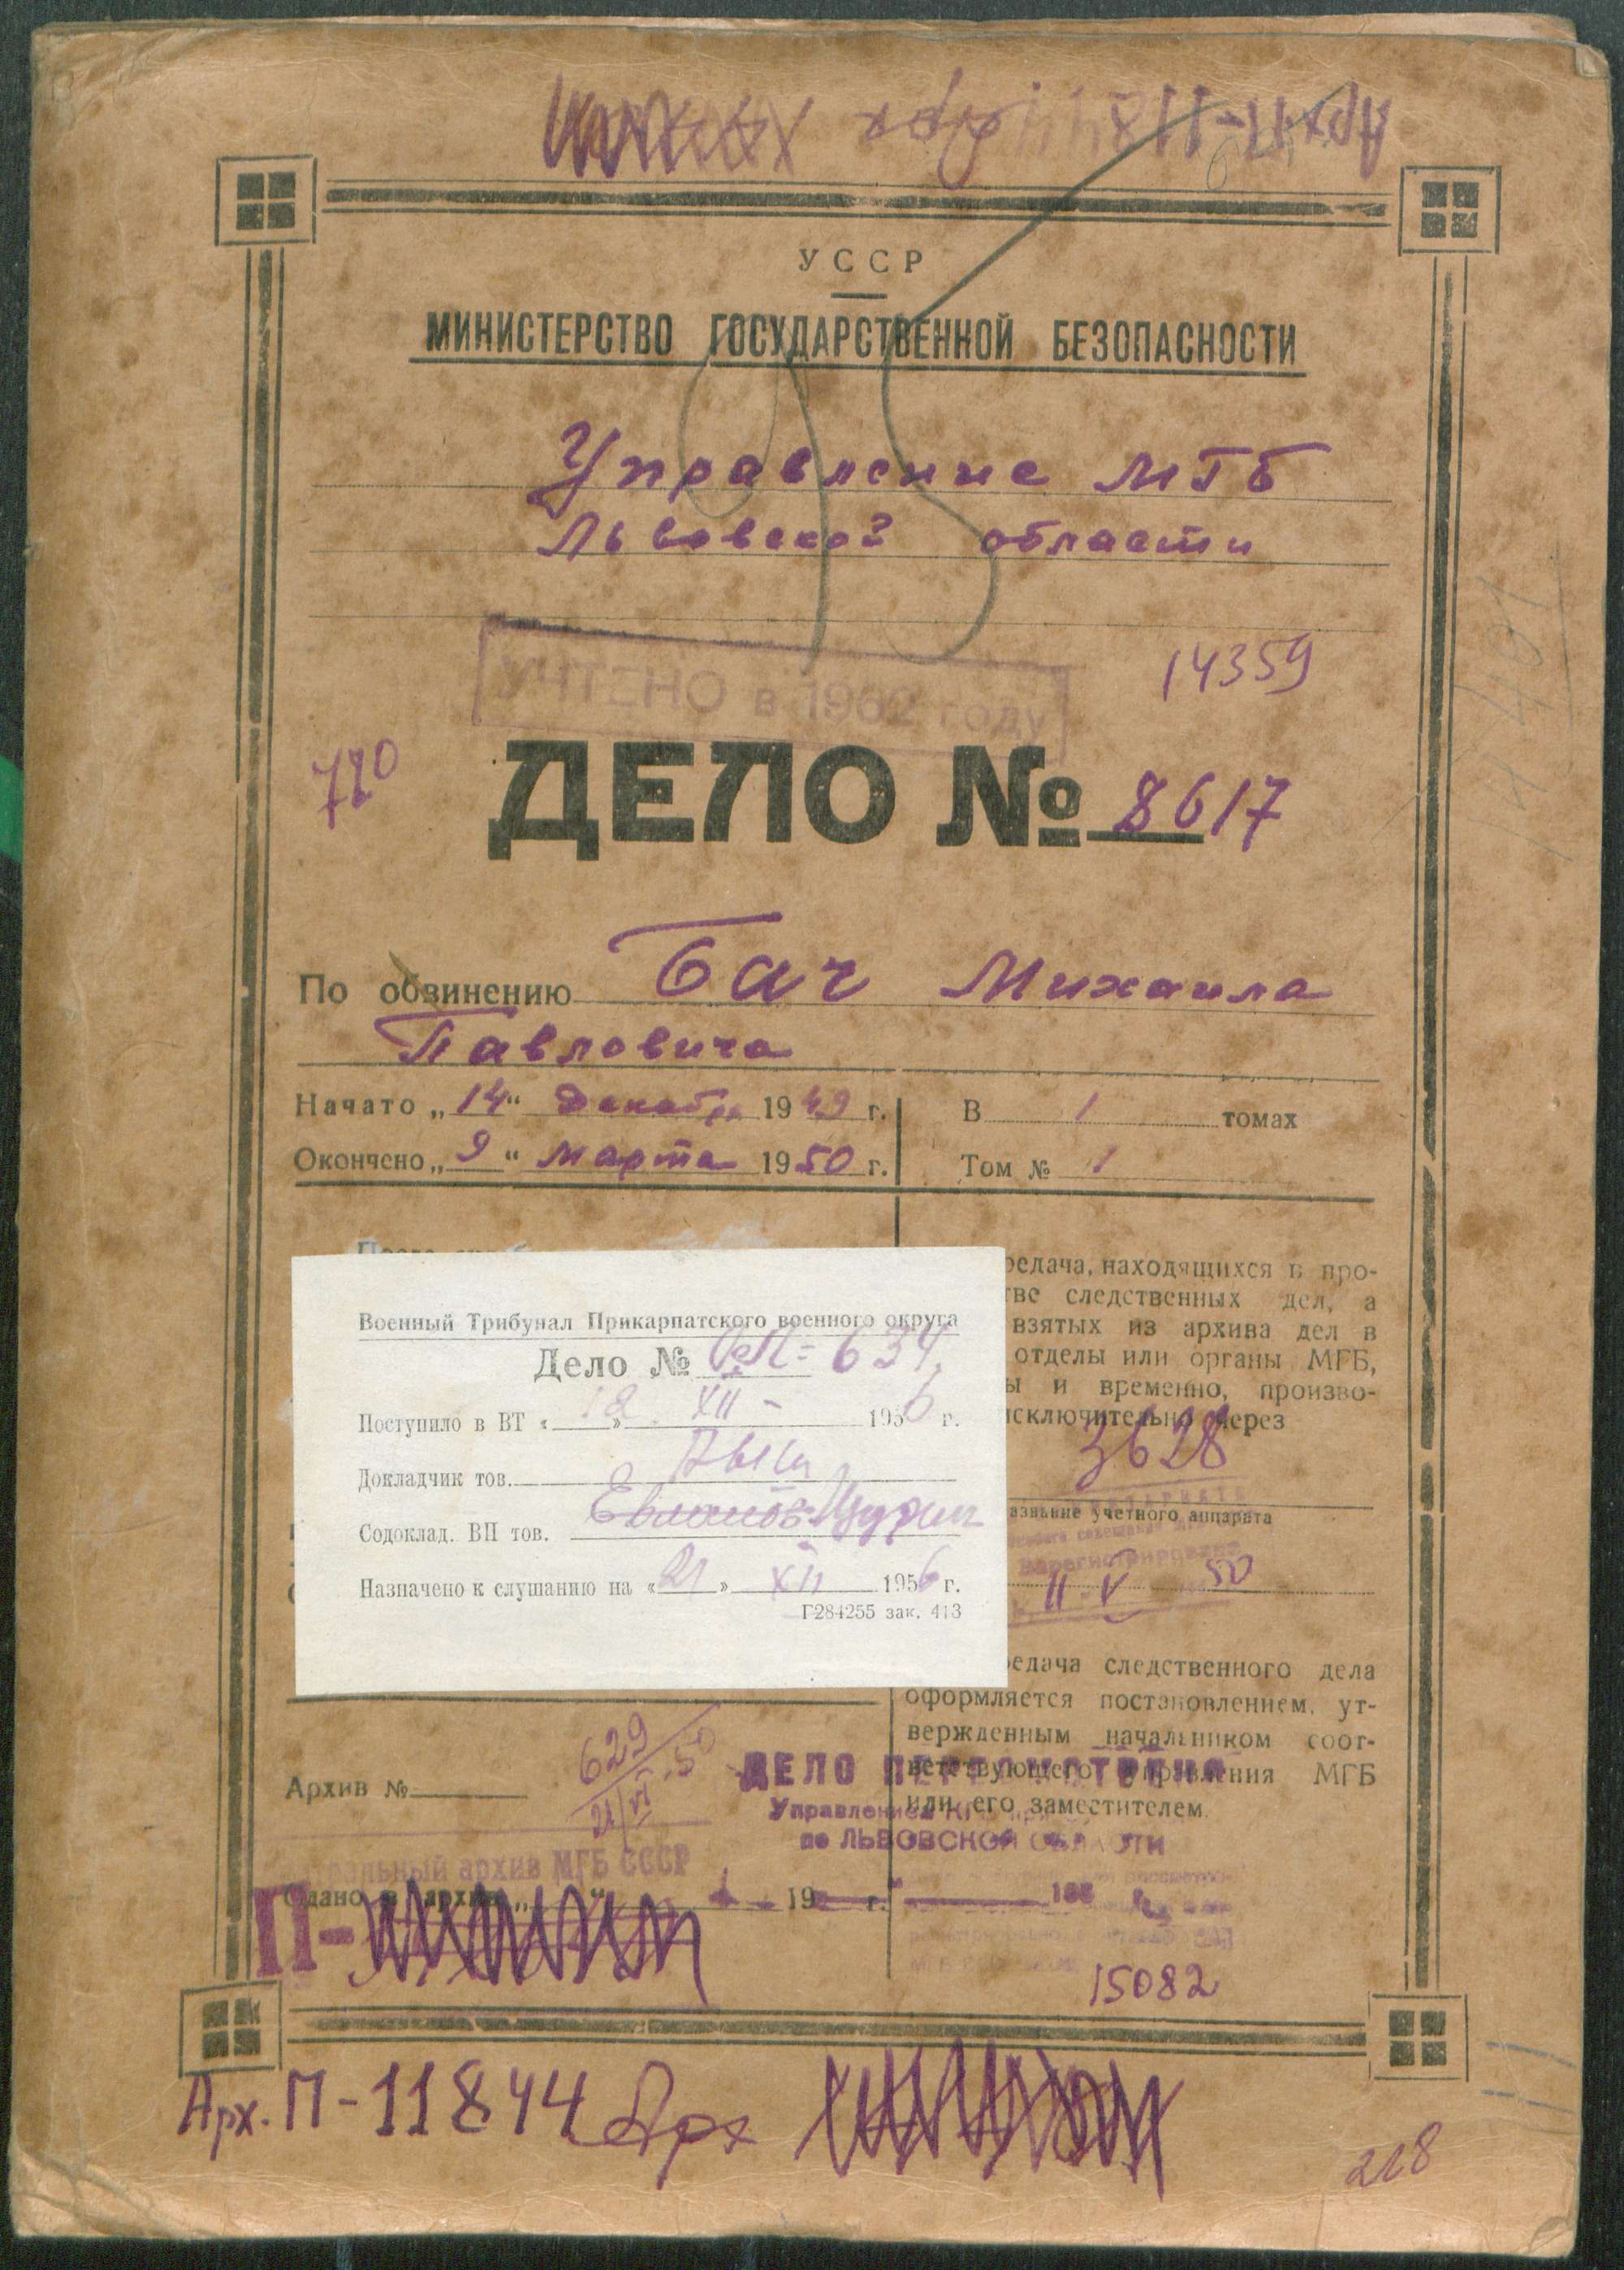 Арх П-11844 Арх
УССР
МИНИСТЕРСТВО ГОСУДАРСТВЕННОЙ БЕЗОПАСНОСТИ
Управление МГБ
Львовской области
95
14359
УЧТЕНО в 1962 году
720
ДЕЛО № 8617
По обвинению Бач Михаила
Павловича
Начато „14“ декабря 1949 г.
Окончено „9“ марта 1950 г.
В 1 томах
Том № 1
После
Военный Трибунал Прикарпатского военного округа
Дело № 634
Поступило в ВТ «12» XII - 1956 г.
Докладчик тов.
Содоклад. ВП тов.
Назначено к слушанию на «21» XII 1956 г.
Г-284255 зак. 413
редача, находящихся в про-
тве следственных дел, а
взятых из архива дел в
отделы или органы МГБ,
ы и временно, произво-
исключительно через
3628
азвание учетного аппарата
Зарегистрировано
11 V 50
едача следственного дела
оформляется постановлением, ут-
вержденным начальником соот-
ветствующего управления МГБ
или его заместителем.
629
21/VI-50
Архив №
ДЕЛО ПЕРЕСМОТРЕНО
Управлением
по ЛЬВОВСКОЙ ОБЛАСТИ
архив МГБ СССР
Сдано в архив „ “ 19 г.
П-
15082
Арх. П-11844 Арх
218